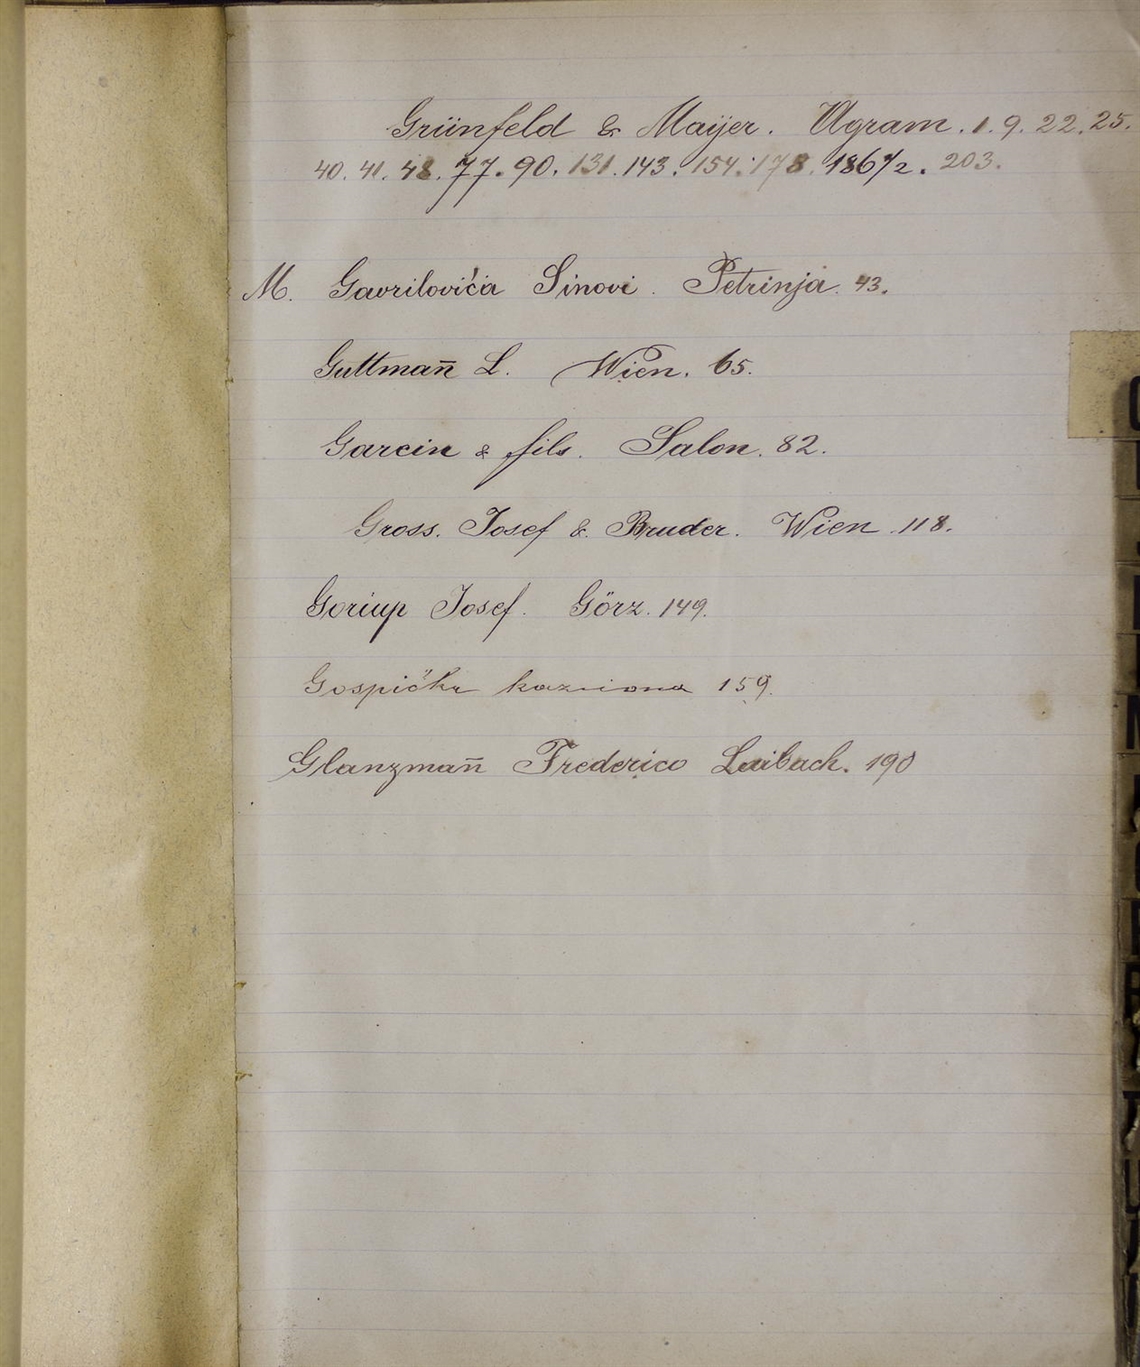 Grünfeld & Maijer. Agram. 1. 9. 22. 25.
40. 41. 48. 77. 90. 131. 143. 154. 178. 186 1/2. 203.
M. Gavrilovića Sinovi. Petrinja. 43.
Guttmañ L. Wien. 65.
Garcin & fils. Salon. 82.
Gross. Josef & Bruder. Wien. 118.
Goriup Josef. Görz. 149.
kazniona 159.
Glanzmañ Frederico Laibach. 190